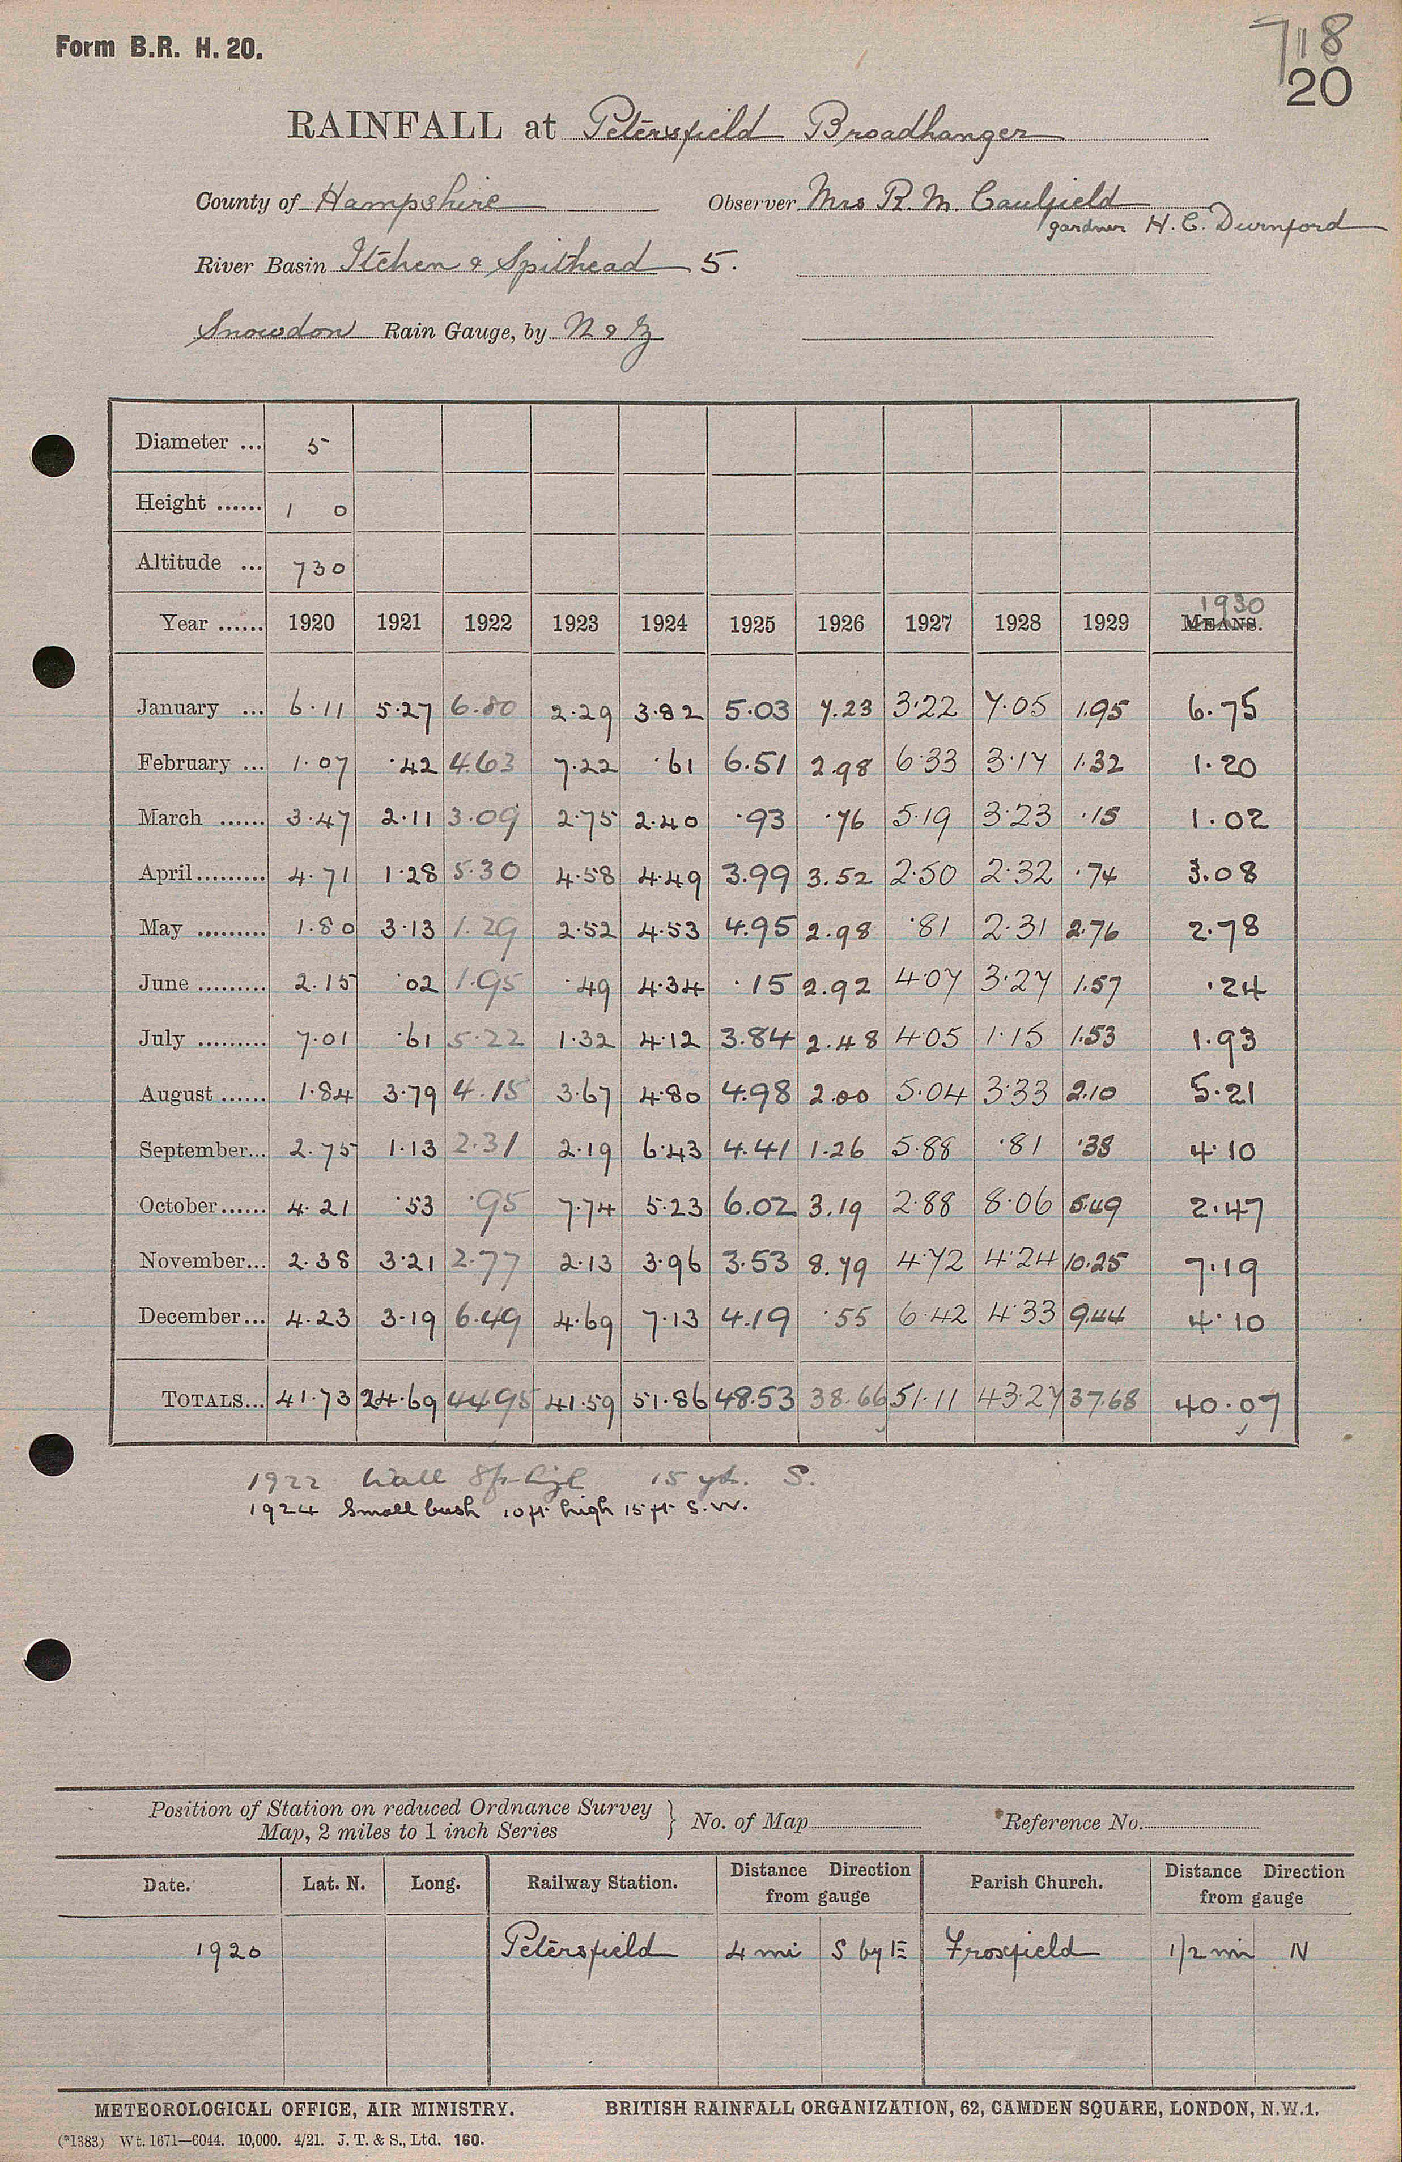 Form B.R. H. 20.
718
20
RAINFALL at Petersfield Broadhanger
County of Hampshire Observer Mrs R. M. Caulfield
gardner H. C. Durnford
River Basin Itchen & Spithead 5.
Snowdon Rain Gauge, by N & Z
Diameter ... 5
Height ...... 1 0
Altitude ... 730
1930
Year ...... 1920 1921 1922 1923 1924 1925 1926 1927 1928 1929 MEANS.
January ... 6.11 5.27 6.80 2.29 3.82 5.03 7.23 3.22 7.05 1.95 6.75
February ... 1.07 .42 4.63 7.22 .61 6.51 2.98 6.33 3.17 1.32 1.20
March ...... 3.47 2.11 3.09 2.75 2.40 .93 .76 5.19 3.23 .15 1.02
April ......... 4.71 1.28 5.30 4.58 4.49 3.99 3.52 2.50 2.32 .74 3.08
May ......... 1.80 3.13 1.29 2.52 4.53 4.95 2.98 .81 2.31 2.76 2.78
June ......... 2.15 .02 1.95 .49 4.34 .15 2.92 4.07 3.27 1.57 .24
July ......... 7.01 .61 5.22 1.32 4.12 3.84 2.48 4.05 1.15 1.53 1.93
August ...... 1.84 3.79 4.15 3.67 4.80 4.98 2.00 5.04 3.33 2.10 5.21
September... 2.75 1.13 2.31 2.19 6.43 4.41 1.26 5.88 .81 .38 4.10
October ...... 4.21 .53 .95 7.74 5.23 6.02 3.19 2.88 8.06 5.49 2.47
November... 2.38 3.21 2.77 2.13 3.96 3.53 8.79 4.72 4.24 10.25 7.19
December... 4.23 3.19 6.49 4.69 7.13 4.19 .55 6.42 4.33 9.44 4.10
TOTALS... 41.73 24.69 44.95 41.59 51.86 48.53 38.66 51.11 43.27 37.68 40.07
1922 Wall 8ft high 15 yds. S.
1924 Small bush 10ft high 15 ft S.W.
Position of Station on reduced Ordnance Survey
Map, 2 miles to 1 inch Series } No. of Map Reference No.
Date. Lat. N. Long. Railway Station. Distance Direction from gauge Parish Church. Distance Direction from gauge
1920 Petersfield 4 mi S by E Froxfield 1/2 mi N
METEOROLOGICAL OFFICE, AIR MINISTRY. BRITISH RAINFALL ORGANIZATION, 62, CAMDEN SQUARE, LONDON, N.W.1.
(*1383) Wt. 1671—6044. 10,000. 4/21. J. T. & S., Ltd. 160.